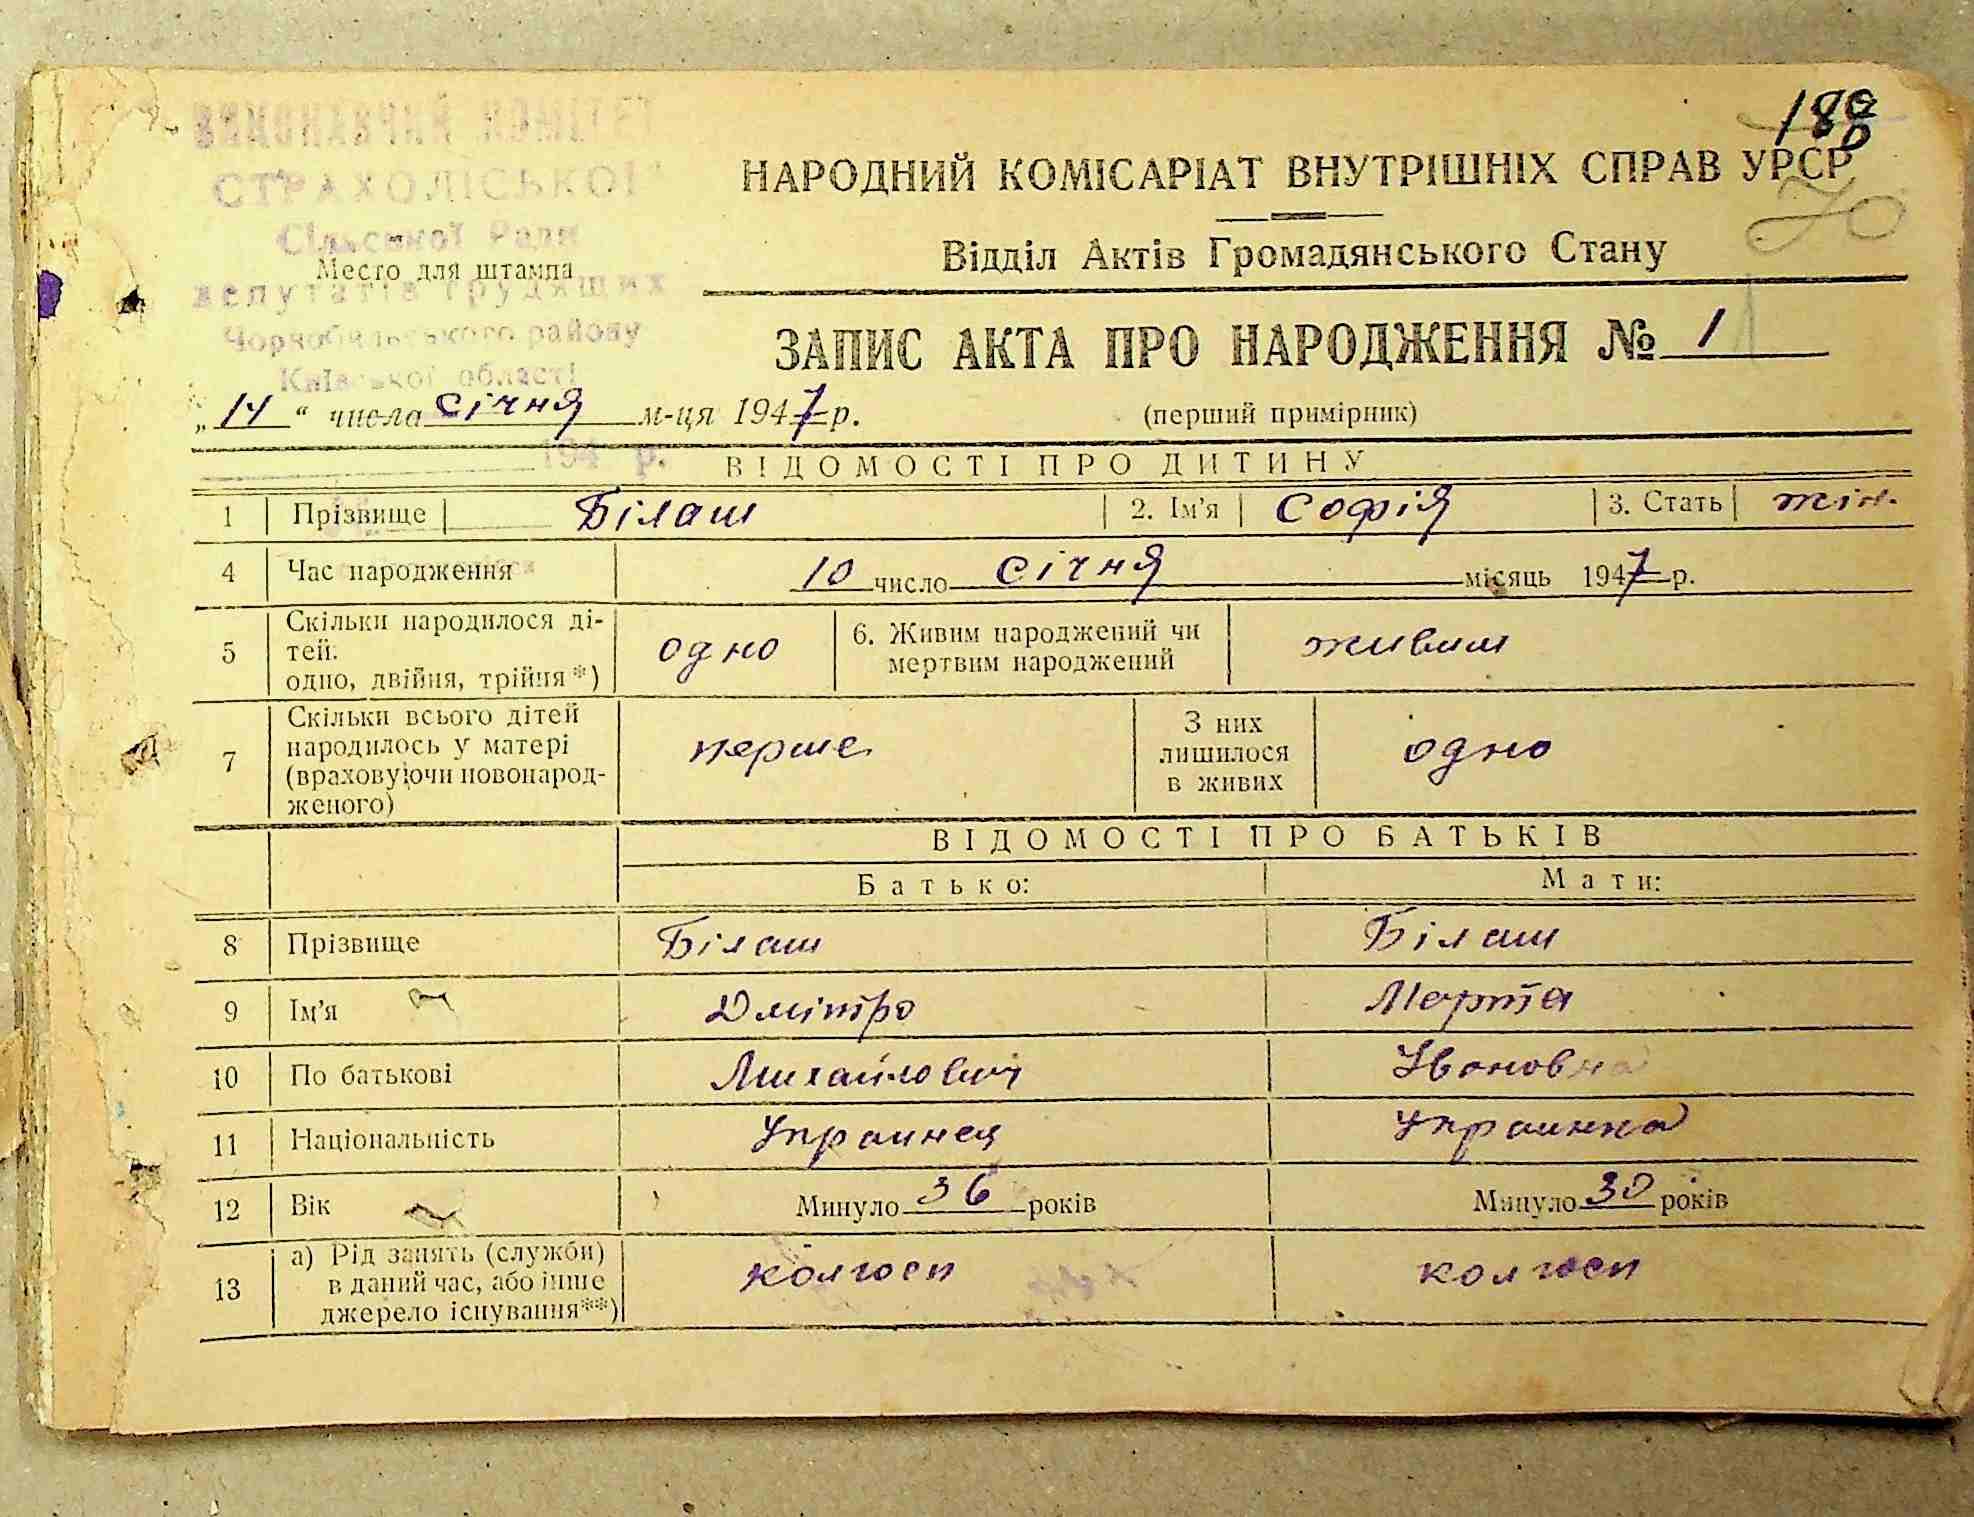 ВИКОНАВЧИЙ КОМІТЕТ
СТРАХОЛІСЬКОЇ
Сільської Ради
Место для штампа
депутатів трудящих
Чорнобильського району
Київської області
194 р.
188
70
НАРОДНИЙ КОМІСАРІАТ ВНУТРІШНІХ СПРАВ УРСР
Відділ Актів Громадянського Стану
ЗАПИС АКТА ПРО НАРОДЖЕННЯ № 1
„14“ числа січня м-ця 1947 р. (перший примірник)
ВІДОМОСТІ ПРО ДИТИНУ
1 Прізвище Білаш 2. Ім'я Софія 3. Стать жін.
4 Час народження 10 число січня місяць 1947 р.
5 Скільки народилося ді-
тей:
одно, двійня, трійня*) одно 6. Живим народжений чи
мертвим народжений живим
7 Скільки всього дітей
народилось у матері
(враховуючи новонарод-
женого) перше З них
лишилося
в живих одно
ВІДОМОСТІ ПРО БАТЬКІВ
Батько: Мати:
8 Прізвище Білаш Білаш
9 Ім'я Дмітро Марта
10 По батькові Михайлович Ивановна
11 Національність Украинец Украинка
12 Вік Минуло 36 років Минуло 30 років
13 а) Рід занять (служби)
в даний час, або інше
джерело існування**) колгосп колгосп